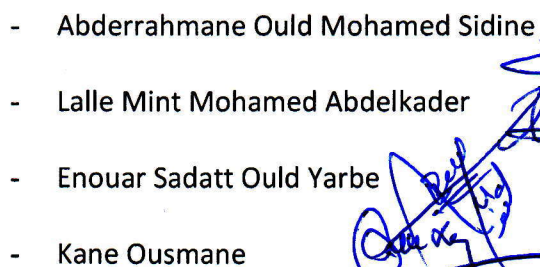 - Abderrahmane Ould Mohamed Sidine
- Lalle Mint Mohamed Abdelkader
- Enouar Sadatt Ould Yarbe
- Kane Ousmane